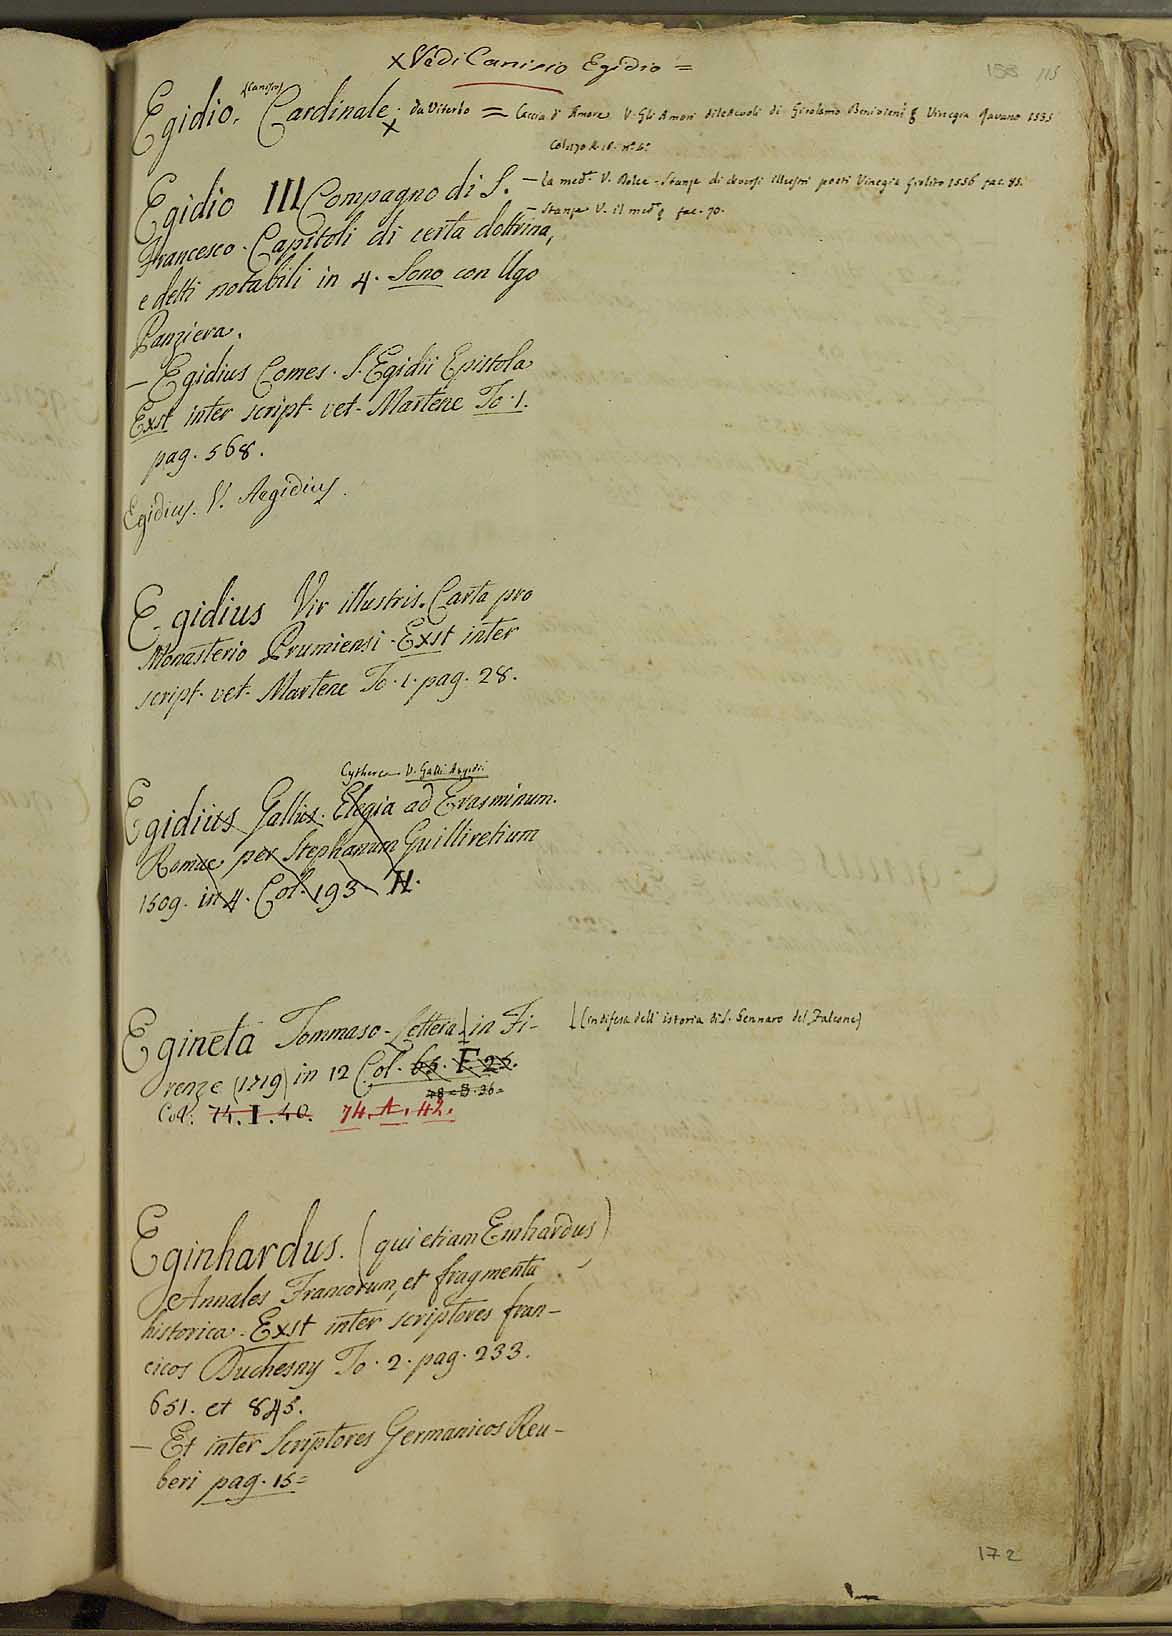 x Vedi Canisio Egidio =
158 115
(Canisio)
Egidio. Cardinale. da Viterbo = Caccia d'Amore V. Gli Amori dilettevoli di Girolamo Benivieni Vinegia 1535
x
Col. 170 A. 16. n.º 6.º
Egidio III Compagno di S.
Francesco. Capitoli di certa dottrina,
e detti notabili in 4. Sono con Ugo
Panziera.
— la med.ª V. Dolce - Stanze di diversi illustri poeti Vinegia Giolito 1556 fac. 85.
— Stanze V. il med.º fac. 70.
— Egidius Comes. S. Egidii Epistola
Exst inter script. vet. Martene To. 1.
pag. 568.
Egidius. V. Aegidius.
Egidius Vir illustris. Carta pro
Monasterio Prumiensi. Exst inter
script. vet. Martene To. 1. pag. 28.
Cytherea V. Galli Aegidii
Egidius Gallus. Elegia ad Erasminum.
Romae per Stephanum Guilliretium
1509. in 4. Col. 193. H.
Egineta Tommaso - Lettera in Fi-
renze (1719) in 12 Col. 65. F. 25.
48 = B. 36 =
Col. 74. I. 40. 74. A. 42.
(in difesa dell' istoria di S. Gennaro del Falcone)
Eginhardus. (qui etiam Einhardus)
Annales Francorum, et fragmenta
historica. Exst inter scriptores fran-
cicos Duchesny To. 2. pag. 233.
651. et 845.
— Et inter Scriptores Germanicos Reu-
beri pag. 15 =
172